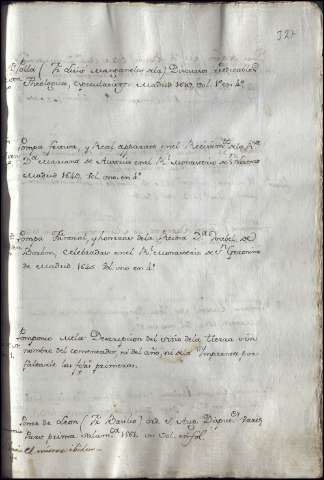 327
(Fr Livio Manzanelos dela) Discursos Predicables
Theologicos, expectativos Madrid 1647, vol. 1º en 4º
Pompa festiva, y Real aparato en el Recivimto dela Rna
Dª Mariana de Austria en el Rl Monasterio de Sn Geronimo
Madrid 1640. Vol. uno, en 4º
Pompa Funeral, y honrras dela Reina Dª Ysabel de
Borbon, celebradas en el Rl Monasterio de Sn Geronimo
de Madrid 1645. Vol uno en 4º
Pomponio Mela Descripcion del sitio dela tierra sin
nombre del comentador, ni del año, ni dela Ymprenta por
faltarle las fojas primeras.
Ponce de Leon (Fr Basilio) del S. Aug.
Pars prima Salamca 1661. un Vol. enfol.
el mismo